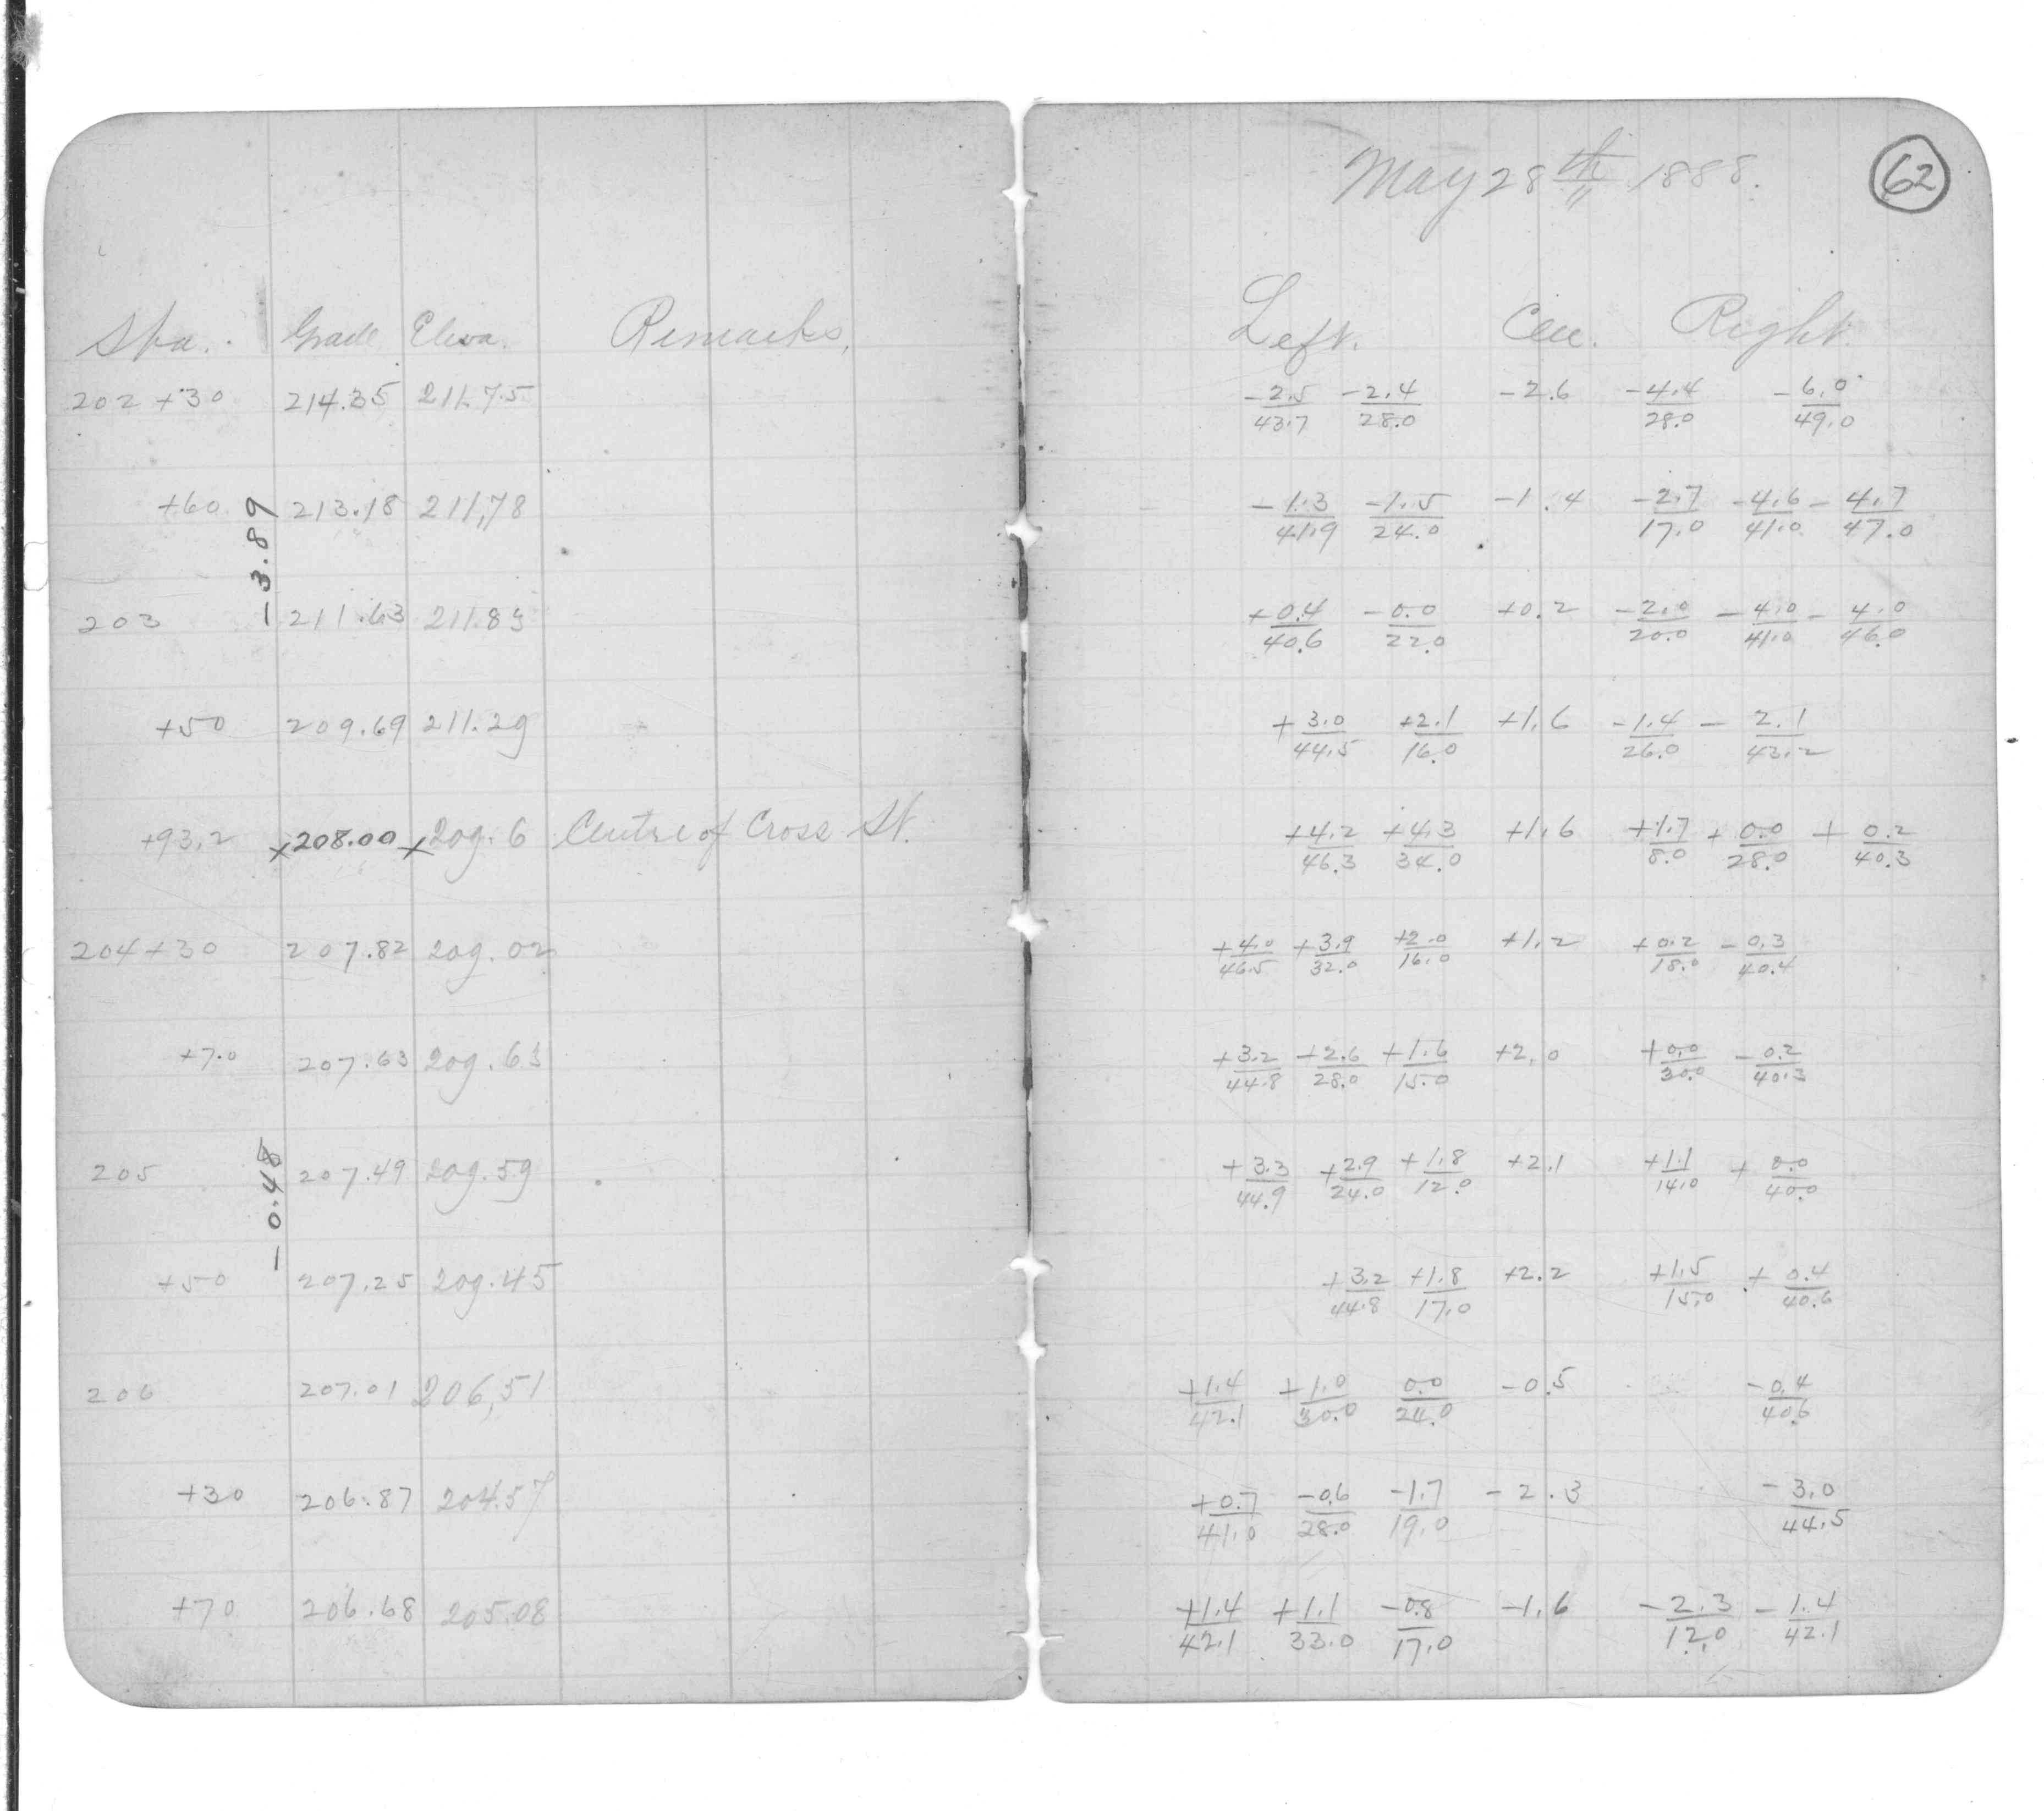 May 28th 1888. 62
Sta. Grade Eleva. Remarks. Left. Cen. Right.
202 +30 214.35 211.75 -2.5/43.7 -2.4/28.0 -2.6 -4.4/28.0 -6.0/49.0
+60 213.18 211.78 -1.3/41.9 -1.5/24.0 -1.4 -2.7/17.0 -4.6/41.0 -4.7/47.0
-3.89
203 211.63 211.83 +0.4/40.6 -0.0/22.0 +0.2 -2.0/20.0 -4.0/41.0 -4.0/46.0
+50 209.69 211.29 +3.0/44.5 +2.1/16.0 +1.6 -1.4/26.0 -2.1/43.2
+93.2 x208.00 x209.6 Centre of Cross St. +4.2/46.3 +4.3/34.0 +1.6 +1.7/8.0 +0.0/28.0 +0.2/40.3
204+30 207.82 209.02 +4.0/46.5 +3.9/32.0 +2.0/16.0 +1.2 +0.2/18.0 -0.3/40.4
+70 207.63 209.63 +3.2/44.8 +2.6/28.0 +1.6/15.0 +2.0 +0.0/30.0 -0.2/40.3
205 207.49 209.59 +3.3/44.9 +2.9/24.0 +1.8/12.0 +2.1 +1.1/14.0 +0.0/40.0
-0.48
+50 207.25 209.45 +3.2/44.8 +1.8/17.0 +2.2 +1.5/15.0 +0.4/40.6
206 207.01 206.51 +1.4/42.1 +1.0/30.0 0.0/24.0 -0.5 -0.4/40.6
+30 206.87 204.57 +0.7/41.0 -0.6/28.0 -1.7/19.0 -2.3 -3.0/44.5
+70 206.68 205.08 +1.4/42.1 +1.1/33.0 -0.8/17.0 -1.6 -2.3/12.0 -1.4/42.1